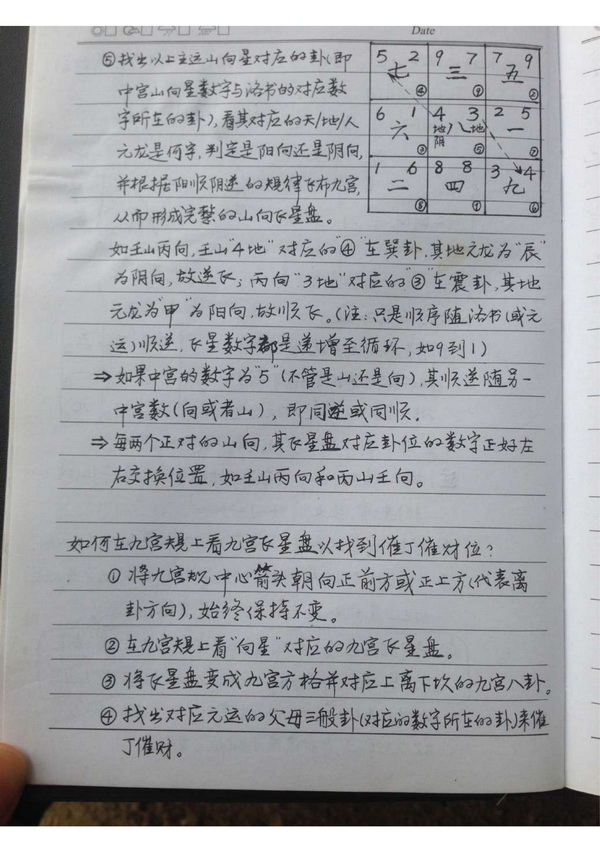 Date
⑤找出以上主运山向星对应的卦(即
中宫山向星数字与洛书的对应数
字所在的卦),看其对应的天/地/人
元龙是何字,判定是阳向还是阴向,
并根据阳顺阴逆的规律飞布九宫,
从而形成完整的山向飞星盘。
5 2 9 7 7 9
七④ 三⑨ 五②
6 1 4 3 2 5
六③ 地阴 八 地⑤ 一⑦
1 6 8 8 3 4
二⑧ 四① 九⑥
如壬山丙向,壬山"4地"对应的"④"在巽卦,其地元龙为"辰"
为阴向,故逆飞;丙向"3地"对应的"③"在震卦,其地
元龙为"甲"为阳向,故顺飞。(注:只是顺序随洛书(或元
运)顺逆,飞星数字都是递增至循环,如9到1)
⇒如果中宫的数字为"5"(不管是山还是向),其顺逆随另一
中宫数(向或者山),即同逆或同顺.
⇒每两个正对的山向,其飞星盘对应卦位的数字正好左
右交换位置,如壬山丙向和丙山壬向。
如何在九宫规上看九宫飞星盘以找到催丁催财位?
①将九宫规中心箭头朝向正前方或正上方(代表离
卦方向),始终保持不变。
②在九宫规上看"向星"对应的九宫飞星盘。
③将飞星盘变成九宫方格并对应上离下坎的九宫八卦。
④找出对应元运的父母三般卦(对应的数字所在的卦)来催
丁催财。